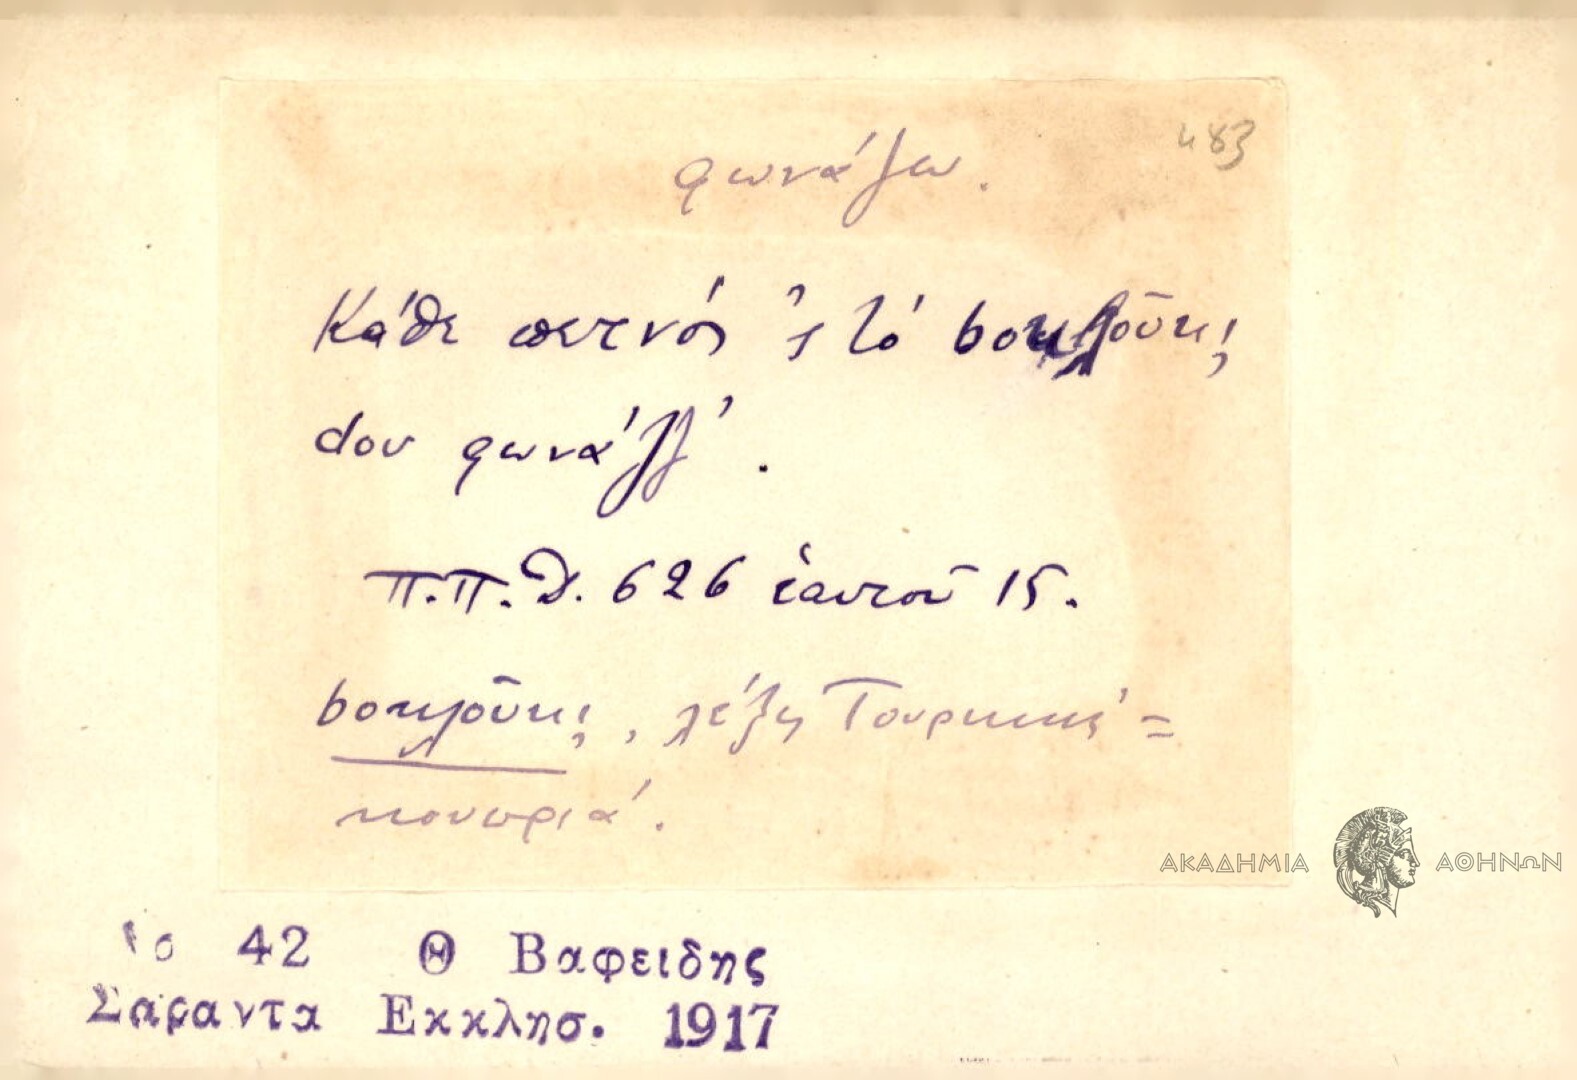 483
φωνάζω.
Κάθε πετ'νός 'ς τό bοκλοῦκι
dου φωνάζ'.
Π.Π.Δ. 626 ἑαυτοῦ 15.
bοκλοῦκι, λέξη Τουρκική =
κουπριά.
ΑΚΑΔΗΜΙΑ ΑΘΗΝΩΝ
42 Θ Βαφειδης
Σαραντα Εκκλησ. 1917